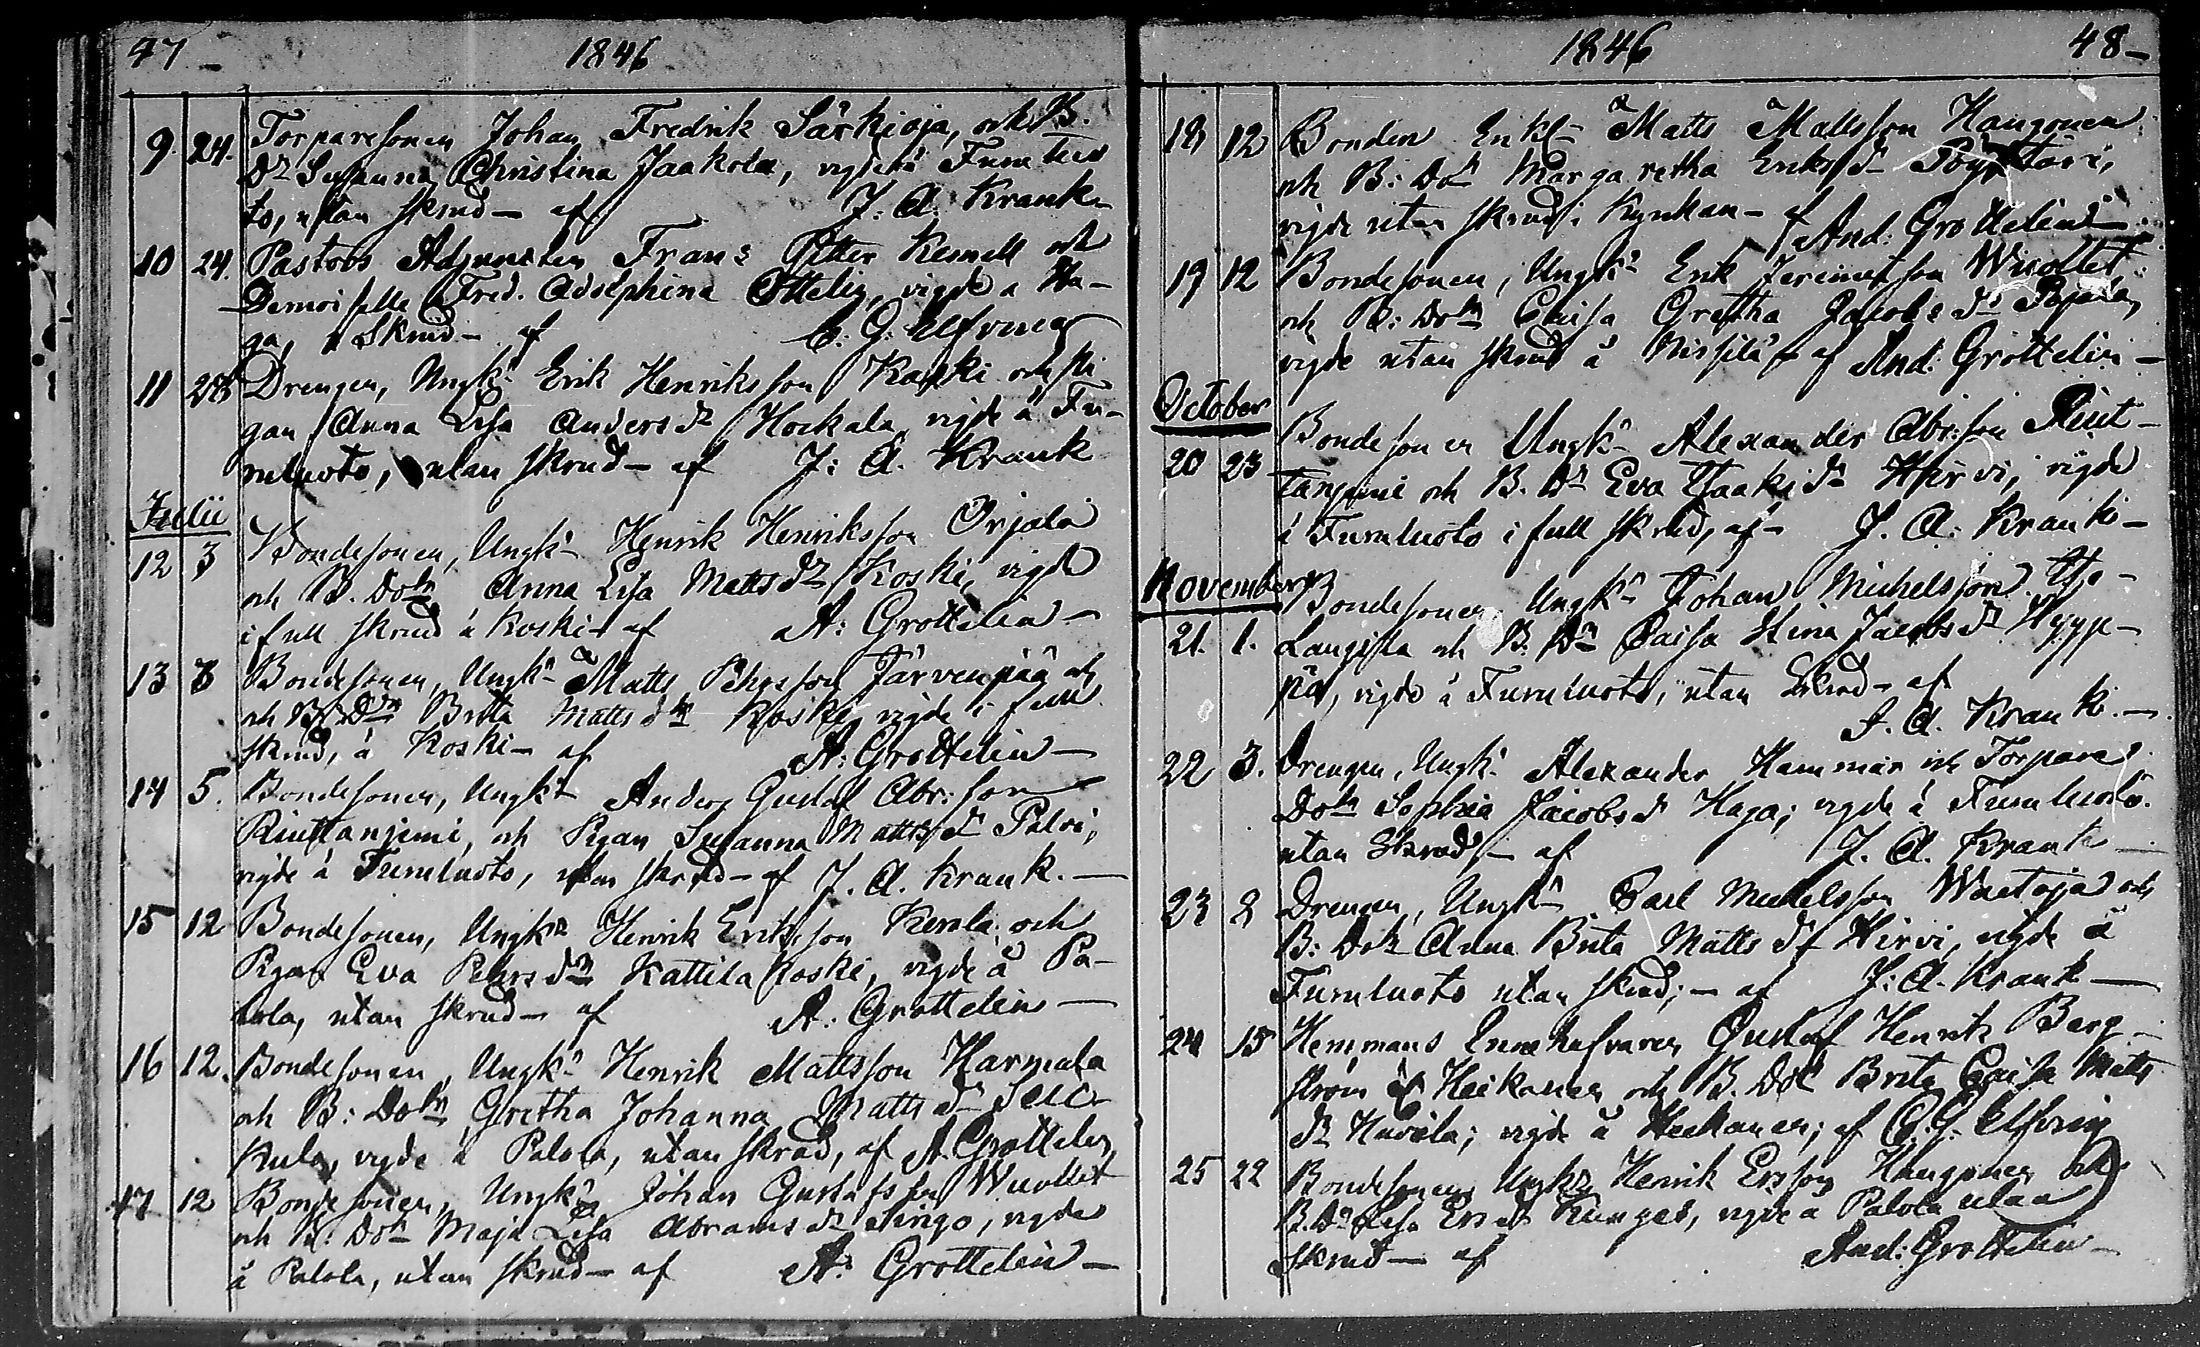 47 - 1846
9. 24. Torparesonen Johan Fredrik Särkioja, och B.
Dr Susanna Christina Jaakola, vigde å Furu luo
to, utan skrud - af J: A. Krank
10 24. Pastors Adjuncten Frans Petter Kesnell och
Demoiselle Fred. Adolphina Ottelin, vigde å Ha-
ga, i Skrud - af C. G. Elfving
11 28 Drengen, Ungk. Erik Henriksson Kaski och Pi
gan Anna Lisa Andersdr Hockala vigde å Fu-
ruluoto, utan skrud - af J: A. Krank
Julii
12 3 Bondesonen, Ungk. Henrik Henriksson Orjala
och B. Dotr Anna Lisa Mattsdr Koski, vigde
i full skrud å Koski - af A: Grottelin -
13 3 Bondesonen, Ungk. Matts Pehrsson Järvenpää och
och B: Dr Brita Mattsdr Koski vigde i full
skrud, å Koski - af A: Grottelin -
14 5. Bondesonen, Ungk. Anders Gustaf Abr:son
Riuttanjemi, och Pigan Susanna Mattsdr Palvi,
vigde å Furuluoto, utan skrud - af J. A. Krank. -
15 12 Bondesonen, Ungk. Henrik Eriksson Kerola och
Pigan Eva Pehrsdr Kattilakoski, vigde å Pa-
lola, utan skrud - af A. Grottelin -
16 12. Bondesonen, Ungk. Henrik Mattsson Harmala
och B: Dotr Gretha Johanna Mattsdr
kula, vigde å Palola, utan skrud, af A. Grottelin
17 12 Bondesonen, Ungk. Johan Gustafsson Wuollet
och B: Dotr Maja Lisa Abramsdr Siirgo, vigde
å Palola, utan skrud - af A: Grottelin -
1846 48 -
18 12 Bonden Enkl. Matts Mattsson Haugonen
och B: Dotr Margaretha Eriksdr Pöyhtäri,
vigde utan skrud i Kynkan - af And: Grottelin -
19 12 Bondesonen, Ungk. Erik Jeremiasson Wuollet
och B: Dotr Caisa Gretha Jacobsdr Pajala,
vigde utan skrud å Nissilä - af And: Grottelin -
October
20 23 Bondesonen Ungk. Alexander Abr:son Riut-
tanjemi och B. Dr Eva Isaksdr Hirvi, vigde
å Furuluoto i full skrud, af - J. A: Krank -
November
21. 1. Bondesonen Ungk. Johan Michelsson
Langista och B. Dr Caisa Stina Jacobsdr Hypp-
pä, vigde å Furuluoto, utan Skrud - af
J. A. Krank. -
22 3. Drengen, Ungk. Alexander Hammar och Torpare
Dotr Sophia Jacobsdr Haga; vigde å Furuluoto.
utan Skrud - af J. A. Krank -
23 8 Drengen, Ungk. Carl Michelsson Waetoja och
B: Dotr Anna Brita Mattsdr Hirvi, vigde å
Furuluoto utan skrud; - af J: A. Krank -
24 15 Hemmans Innehafvaren Gustaf Henrik Berg-
ström å Heikanen och B. Dotr Brita Caisa Matts
dr Huvila; vigde å Heikanen; af C. G. Elfving
25 22 Bondesonen Ungk. Henrik Ersson Haugonen och
B. Dr Lisa Ersdr Kunges, vigde å Palola utan
skrud - af And: Grottelin -